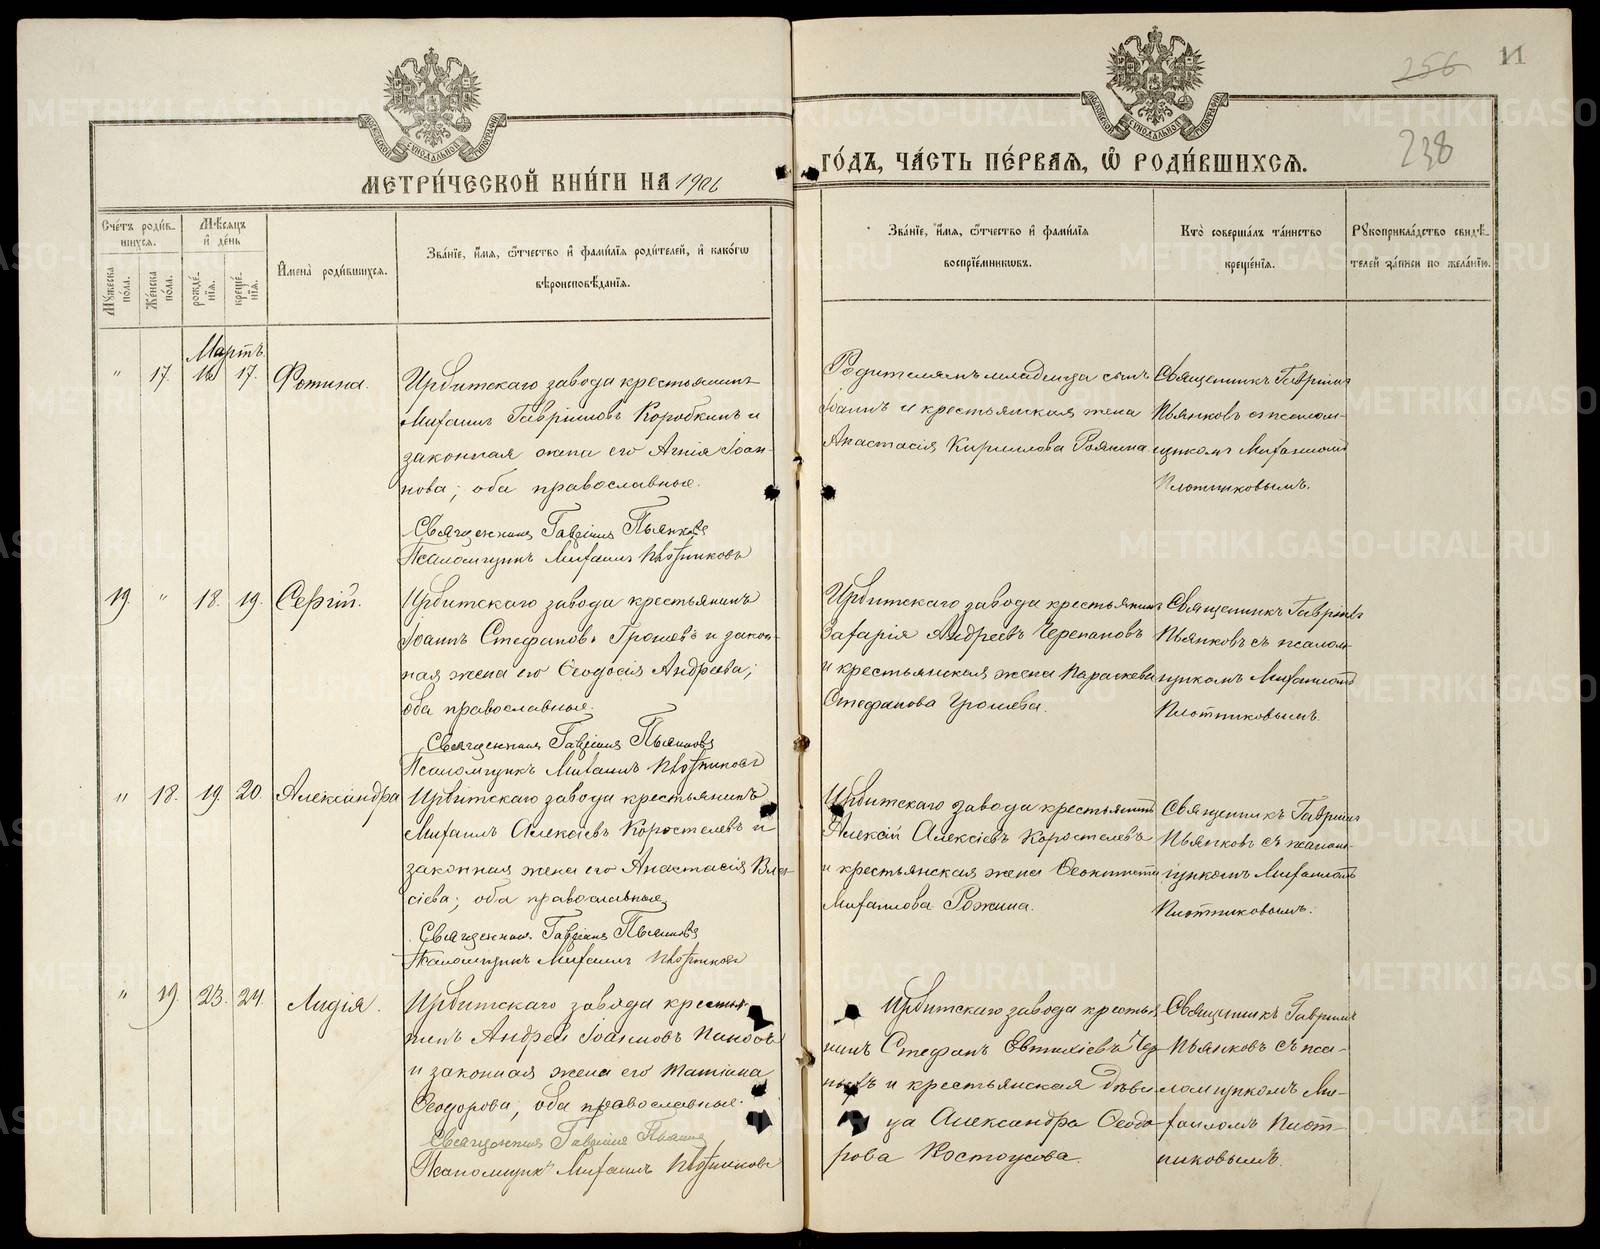 256
11
238
МОСКОВСКОЙ СѴНОДАЛЬНОЙ ТИПОГРАФІИ
МОСКОВСКОЙ СѴНОДАЛЬНОЙ ТИПОГРАФІИ
МЕТРИ́ЧЕСКОЙ КНИ́ГИ НА 1906 ГО́ДЪ, ЧА́СТЬ ПЕ́РВАѦ, Ѽ РОДИ́ВШИХСѦ.
Сче́тъ роди́в-
шихсѧ.
Мѹ́жеска по́ла.
Же́нска по́ла.
Мѣ́сѧцъ
и҆ де́нь
рожде́-
нїѧ.
креще́-
нїѧ.
И҆мена̀ роди́вшихсѧ.
Зва́нїе, и҆́мѧ, ѻ҆́тчество и҆ фами́лїѧ роди́телей, и҆ како́гѡ
вѣроисповѣ́данїѧ.
Зва́нїе, и҆́мѧ, ѻ҆́тчество и҆ фами́лїѧ
воспрїе́мникѡвъ.
Кто̀ соверша́лъ та́инство
креще́нїѧ.
Рѹкоприкла́дство свидѣ́-
телей за́писи по жела́нїю.
Мартъ.
" 17. 16 17. Фотина.
Ирбитскаго завода крестьянинъ
Михаилъ Гавріиловъ Коробкинъ и
законная жена его Агнія Іоан-
нова; оба православные.
Священникъ Гавріилъ Пьянковъ
Псаломщикъ Михаилъ Плотниковъ
Родителямъ младенца сынъ
Іоаннъ и крестьянская жена
Анастасія Кириллова
Священникъ Гавріилъ
Пьянковъ съ псалом-
щикомъ Михаиломъ
Плотниковымъ.
19. " 18. 19. Сергій.
Ирбитскаго завода крестьянинъ
Іоаннъ Стефановъ и закон-
ная жена его Ѳеодосія Андреева;
оба православные.
Священникъ Гавріилъ Пьянковъ
Псаломщикъ Михаилъ Плотниковъ
Ирбитскаго завода крестьянинъ
Захарія Андреевъ Черепановъ
и крестьянская жена Параскева
Стефанова
Священникъ Гавріилъ
Пьянковъ съ псалом-
щикомъ Михаиломъ
Плотниковымъ.
" 18. 19. 20. Александра
Ирбитскаго завода крестьянинъ
Михаилъ Алексіевъ Коростелевъ и
законная жена его Анастасія Вла-
сіева; оба православные
Священникъ Гавріилъ Пьянковъ
Псаломщикъ Михаилъ Плотниковъ
Ирбитскаго завода крестьянинъ
Алексій Алексіевъ Коростелевъ
и крестьянская жена Ѳеоктиста
Михаилова Рожина.
Священникъ Гавріилъ
Пьянковъ съ псалом-
щикомъ Михаиломъ
Плотниковымъ.
" 19. 23. 24. Лидія.
Ирбитскаго завода крестья-
нинъ Андрей Іоанновъ
и законная жена его Татіана
Ѳеодорова, оба православные.
Священникъ Гавріилъ Пьянковъ
Псаломщикъ Михаилъ Плотниковъ
Ирбитскаго завода крестья-
нинъ Стефанъ Евтихіевъ
и крестьянская дѣви-
ца Александра Ѳеодо-
рова Костоусова.
Священникъ Гавріилъ
Пьянковъ съ пса-
ломщикомъ Ми-
хаиломъ Плот-
никовымъ.
METRIKI.GASO-URAL.RU